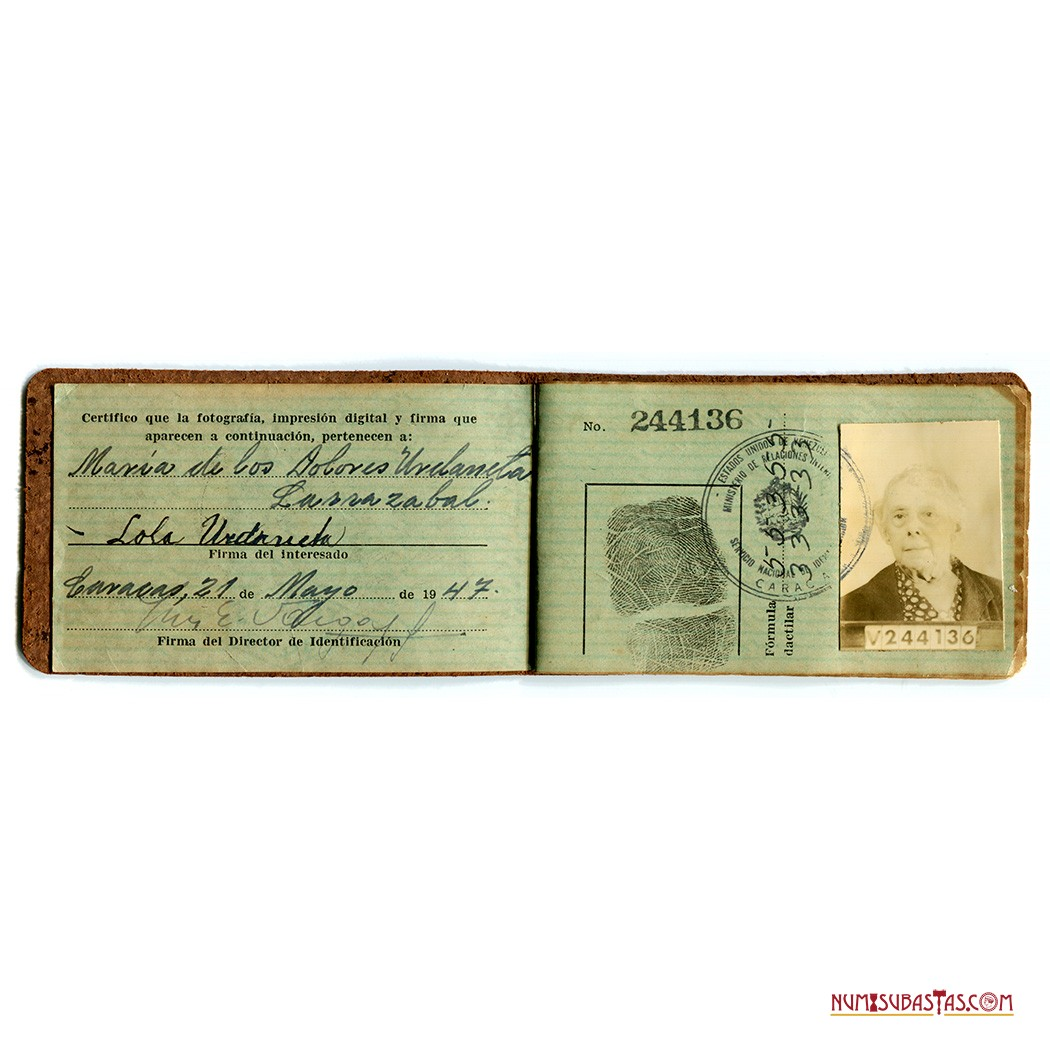 Certifico que la fotografía, impresión digital y firma que
aparecen a continuación, pertenecen a:
María de los Dolores Urdaneta
Larrazabal.
Lola Urdaneta
Firma del interesado
Caracas, 21 de Mayo de 1947.
Firma del Director de Identificación
No. 244136
ESTADOS UNIDOS DE VENEZU
MINISTERIO DE RELACIONES INTER
SERVICIO NACIONAL
IDEN
CARACA
Fórmula
dactilar
V244136
NUMISUBASTAS.COM